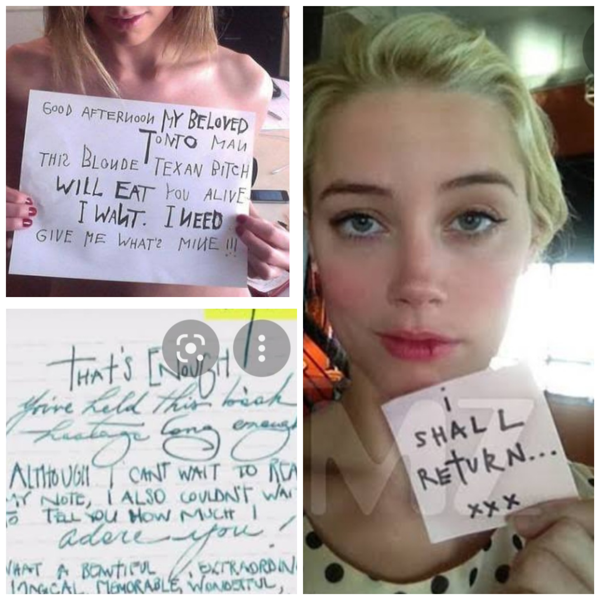 GOOD AFTERNOON MY BELOVED
TONTO MAN
THIS BLONDE TEXAN BITCH
WILL EAT YOU ALIVE
I WANT. I NEED
GIVE ME WHAT'S MINE !!!
i
SHALL
RETURN...
xxx
MZ
THAT'S ENOUGH
You've held this book
hostage long enough
ALTHOUGH I CANT WAIT TO REA
MY NOTE, I ALSO COULDN'T WAI
TO TELL YOU HOW MUCH I
adore you!
WHAT A BEWTIFUL, EXTRAORDIN
MAGICAL, MEMORABLE, WONDERFUL,